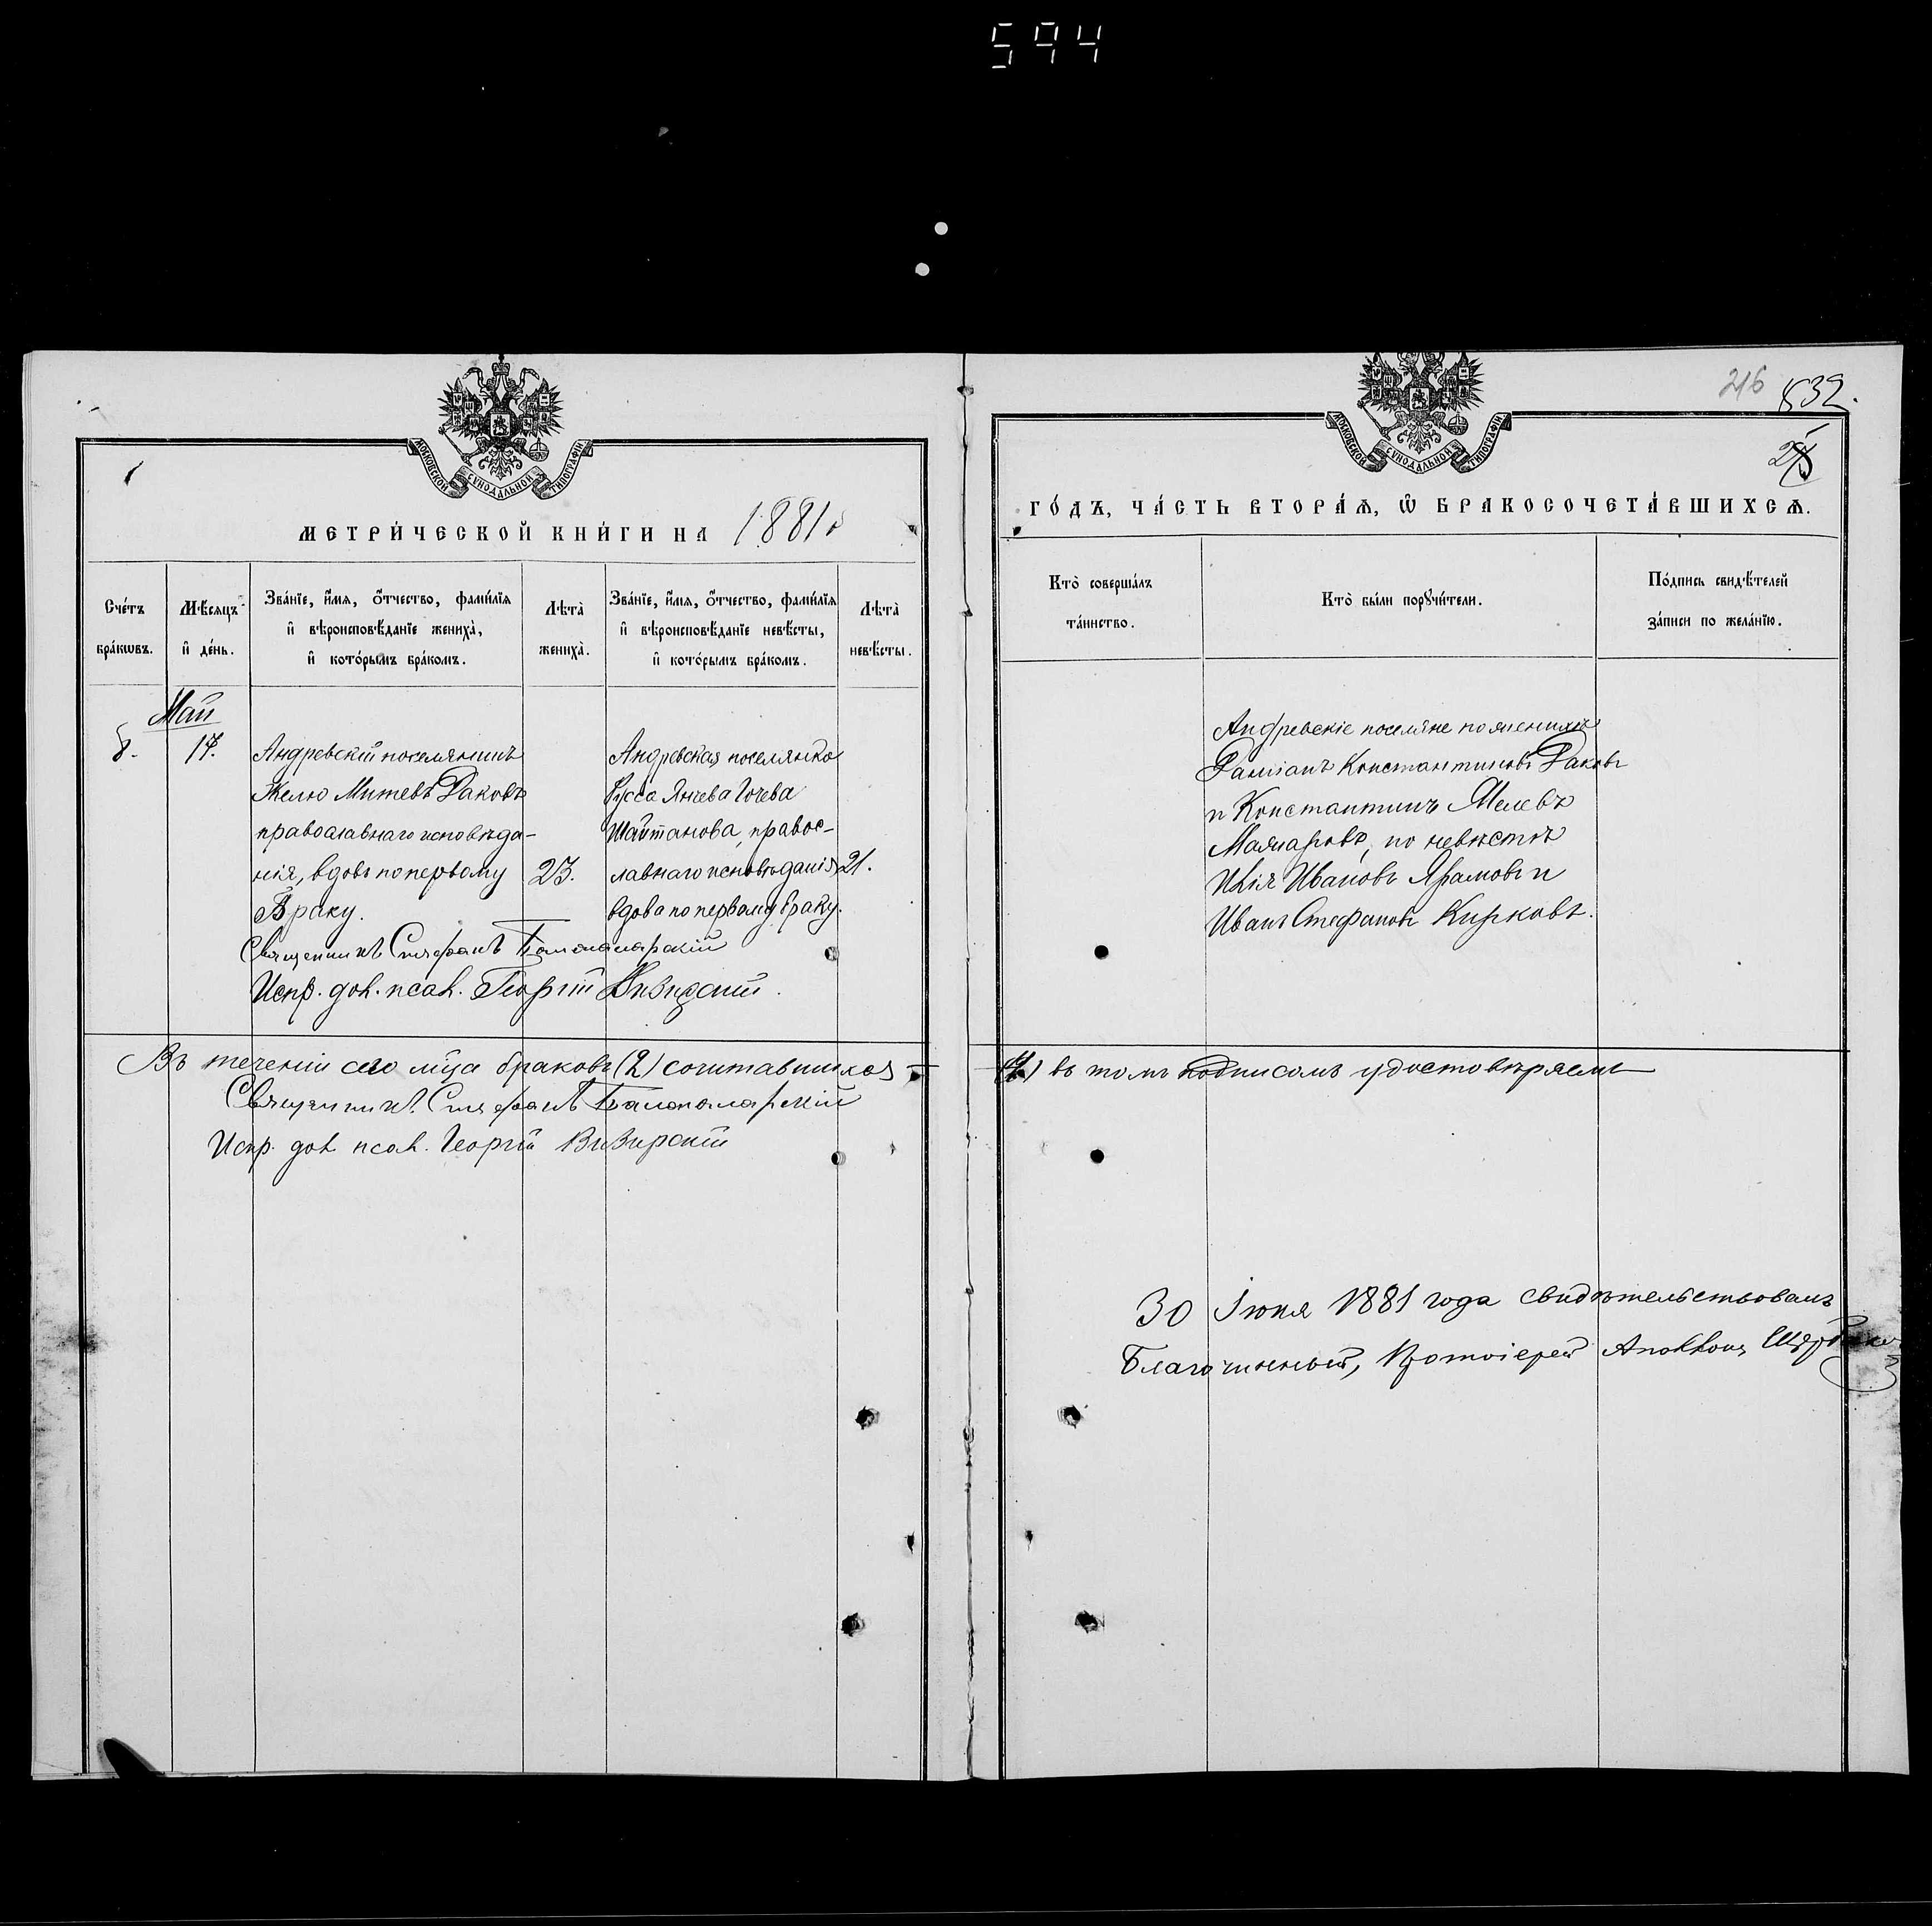 594
МОСКОВСКОЙ СѴНОДАЛЬНОЙ ТИПОГРАФІИ
МЕТРИ́ЧЕСКОЙ КНИ́ГИ НА 1881
Сче́тъ бра́кωвъ.
Мѣ́сяцъ и҆ де́нь.
Зва́нїе, и҆́мя, ѻ҆́тчество, фами́лїя и҆ вѣроисповѣ́данїе жениха̀, и҆ кото́рымъ бра́комъ.
Лѣта̀ жениха̀.
Зва́нїе, и҆́мя, ѻ҆́тчество, фами́лїя и҆ вѣроисповѣ́данїе невѣ́сты, и҆ кото́рымъ бра́комъ.
Лѣта̀ невѣ́сты.
Май
8.
17.
Андревскій поселянинъ
Желю Митевъ Раковъ
православнаго исповѣда-
нія, вдовъ по первому
браку.
23.
Андревская поселянка
Русса Янчева Гочева
Шайтанова, правос-
лавнаго исповѣданія
вдова по первому браку.
21.
Священникъ Стефанъ
Испр. дол. псал. Георгій
Въ теченіи сего м-ца браковъ (2) сочитавшихся
Священникъ Стефанъ
Испр. дол. псал. Георгій
216
832.
МОСКОВСКОЙ СѴНОДАЛЬНОЙ ТИПОГРАФІИ
ГО́ДЪ, ЧА́СТЬ ВТОРА́Ѧ, Ѽ БРАКОСОЧЕТА́ВШИХСѦ.
Кто̀ соверша́лъ та́инство.
Кто̀ бы́ли порꙋчи́тели.
По́дпись свидѣ́телей за́писи по жела́нїю.
Андревскіе поселяне по женихѣ
Даміанъ Константиновъ Раковъ
и Константинъ Мелевъ
по невѣстѣ
Илія Ивановъ Арамовъ и
Иванъ Стефановъ Кирковъ.
(4) въ томъ подписомъ удостовѣряемъ
30 Іюня 1881 года свидѣтельствовалъ
Благочинный, Протоіерей